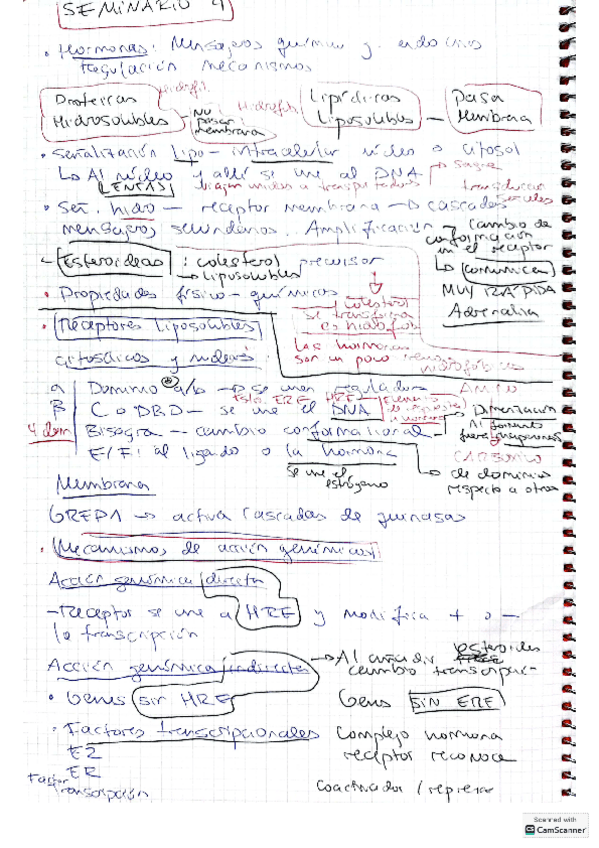 SEMINARIO 4
• Hormonas: Mensajeros químicos y endocrinos
Regulación mecanismos
Proteicas Hidrofil
Hidrosolubles
No pasar membrana
Hidrofob Lipídicas
Liposolubles — Pasa
Membrana
• Señalización lipo — intracelular núcleo o citosol
Lo Al núcleo y allí se une al DNA
LENTAS
• Señ. hidro — receptor membrana → cascadas
mensajeros secundarios. Amplificación → Cambio de
conformación
en el receptor
Lo comunica
MUY RÁPIDA
Adrenalina
Esteroideas : colesterol precursor
→ Liposolubles
• Propiedades físico-químicas
colesterol
se transforma
Las hormonas
son un poco menos
hidrofóbicas
• Receptores liposolubles
citosólicos y nucleares
α Dominio a/b → se unen reguladores
β C o DBD — se une el DNA
4 dom Bisagra — cambio conformacional
E/F: al ligado o la hormona
Se une el
estrógeno
→ Dimerización
→ de dominios
respecto a otros
AMINO
CARBOXILO
Membrana
GREP1 → activa cascadas de quinasas
• Mecanismos de acción genómicos
Acción genómica directa
-Receptor se une a HRE y modifica + o -
la transcripción
Acción genómica indirecta → Al añadir esteroides
cambio transcripción
• Genes sin HRE Genes SIN ERE
• Factores transcripcionales Complejo hormona
E2 receptor reconoce
ER
Factor
Transcripción
Coactivador / represor
Scanned with
CamScanner